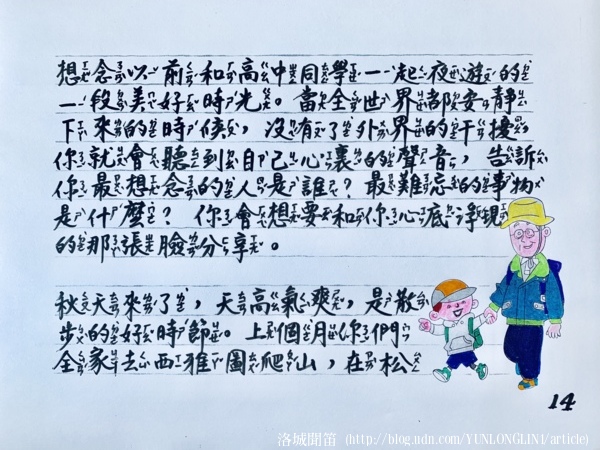 想念以前和高中同學一一起夜遊的
一段美好時光。當全世界都安靜
下來的時候，沒有了外界的干擾
你就會聽到自己心裏的聲音，告訴
你最想念的人是誰？最難忘的事物
是什麼？你會想要和你心底浮現
的那張臉分享。
秋天來了，天高氣爽，是散
步的好時節。上個月你們
全家去西雅圖爬山，在松
14
洛城聞笛 (http://blog.udn.com/YUNLONGLIN1/article)